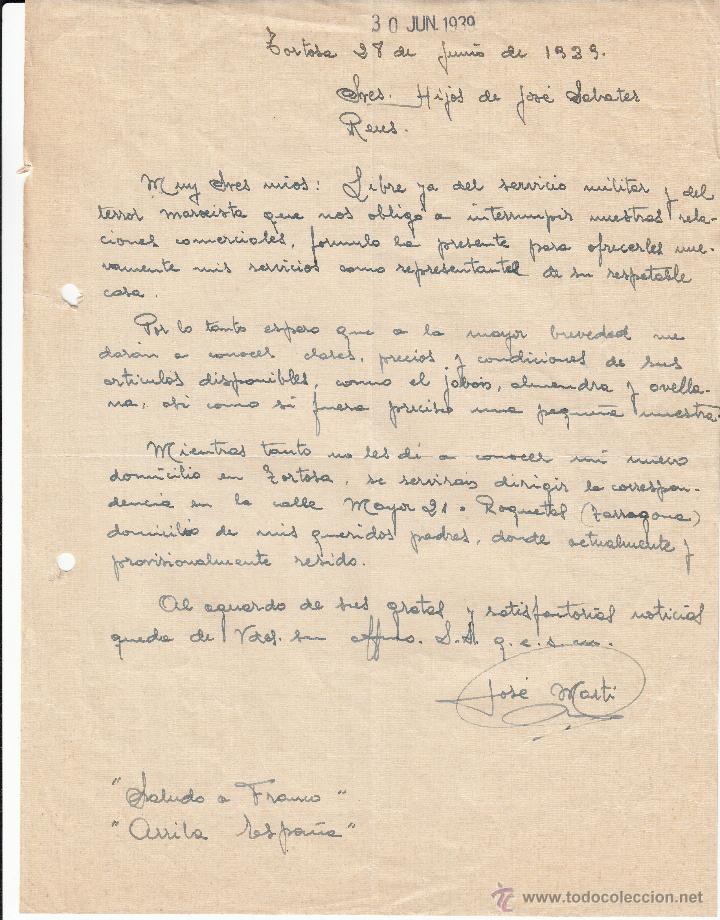 30 JUN. 1939
Tortosa 28 de Junio de 1939.
Sres. Hijos de José Sabater
Reus.
Muy Sres mios: Libre ya del servicio militar y del
terror marxista que nos obligó a interrumpir nuestras rela-
ciones comerciales, formulo la presente para ofrecerles nue-
vamente mis servicios como representante de su respetable
casa.
Por lo tanto espero que a la mayor brevedad me
darán a conocer clases, precios y condiciones de sus
artículos disponibles, como el jabón, almendra y avella-
na, asi como si fuera preciso una pequeña muestra
Mientras tanto no les dé a conocer mi nuevo
domicilio en Tortosa, se servirán dirigir la correspon-
dencia en la calle Mayor 21 - Roquetas (Tarragona)
domicilio de mis queridos padres, donde actualmente y
provisionalmente resido.
Al aguardo de sus gratas y satisfactorias noticias
queda de Vdes. su affmo. S.S. q.e.s.m.
José Martí
"Saludo a Franco"
"Arriba España"
www.todocoleccion.net